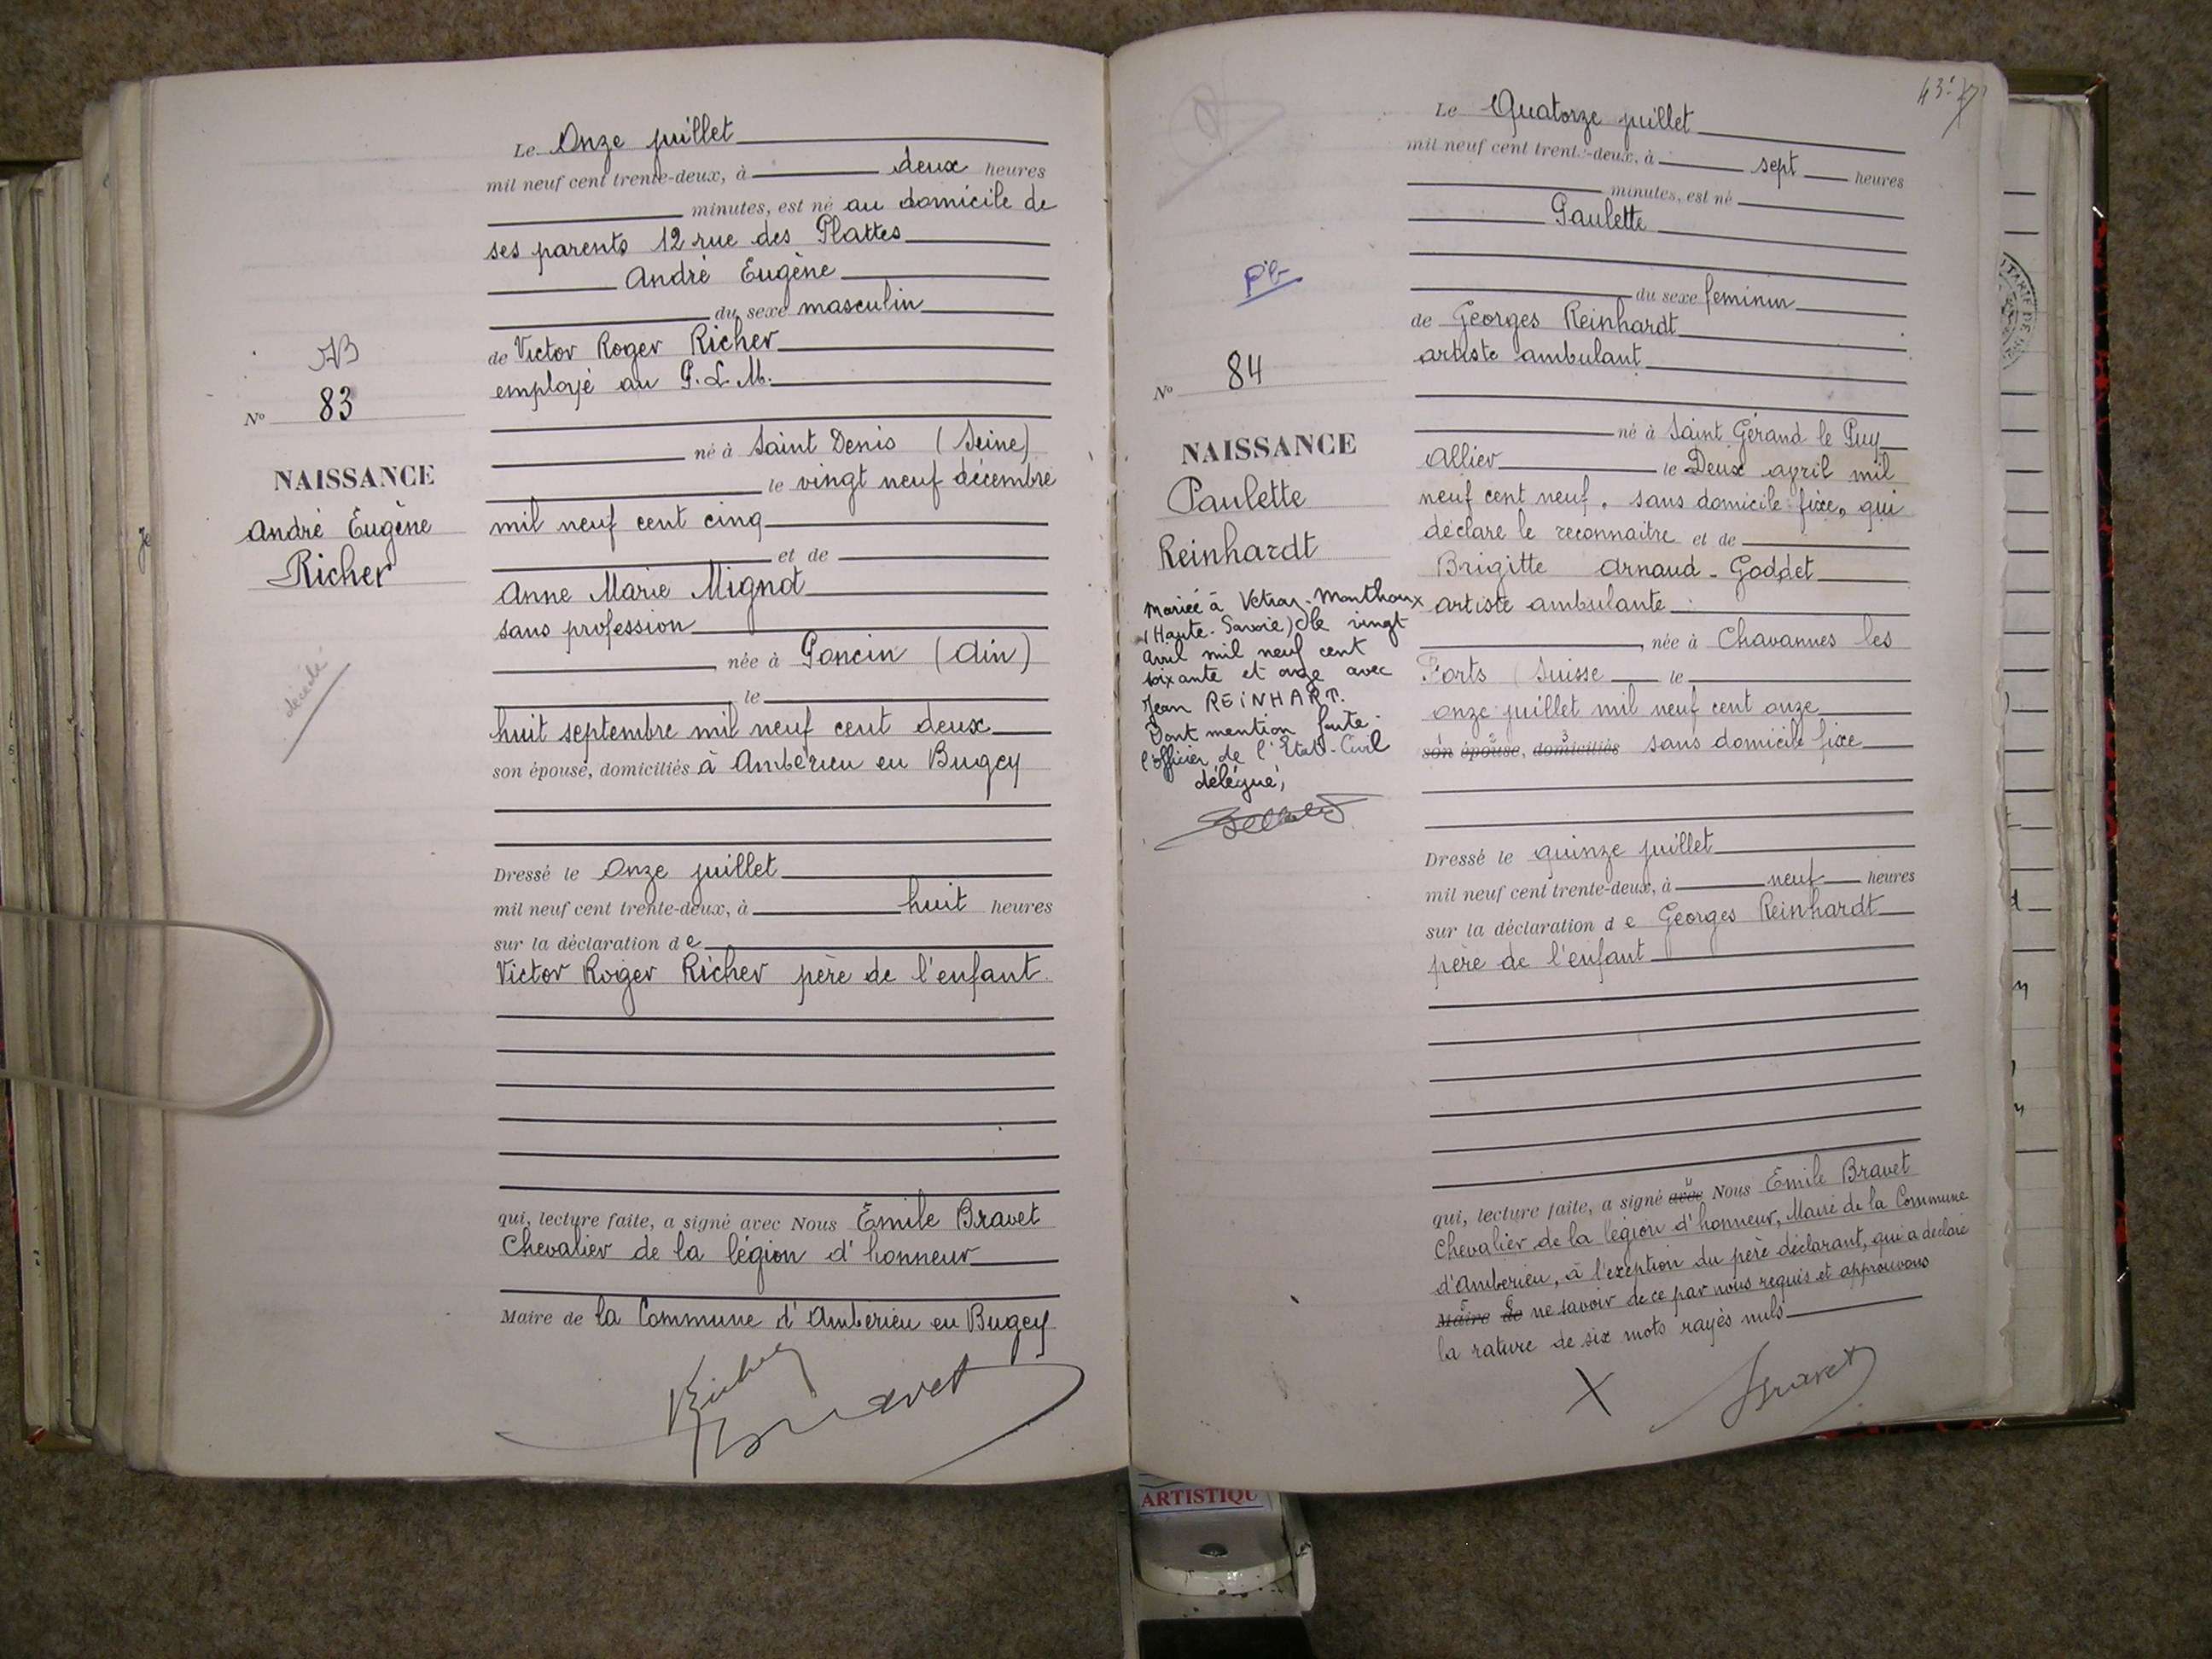 Le Onze juillet
mil neuf cent trente-deux, à deux heures
minutes, est né au domicile de
ses parents 12 rue des Plattes
André Eugène
du sexe masculin
de Victor Roger Richer
employé au P.L.M.
N° 83
né à Saint Denis (Seine)
le vingt neuf décembre
mil neuf cent cinq
et de
Anne Marie Mignot
sans profession
née à Poncin (Ain)
le
huit septembre mil neuf cent deux
son épouse, domiciliés à Ambérieu en Bugey
NAISSANCE
André Eugène
Richer
décédé
Dressé le Onze juillet
mil neuf cent trente-deux, à huit heures
sur la déclaration de
Victor Roger Richer père de l'enfant.
qui, lecture faite, a signé avec Nous Emile Bravet
Chevalier de la légion d'honneur
Maire de la Commune d'Ambérieu en Bugey
Richer
Bravet
43
Le Quatorze juillet
mil neuf cent trente-deux, à sept heures
minutes, est né
Paulette
du sexe feminin
de Georges Reinhardt
artiste ambulant
N° 84
né à Saint Gérand le Puy
Allier le Deux avril mil
neuf cent neuf, sans domicile fixe, qui
déclare le reconnaitre et de
Brigitte Arnaud-Goddet
artiste ambulante
née à Chavannes les
Forts (Suisse le
onze juillet mil neuf cent onze
son épouse, domiciliés sans domicile fixe
NAISSANCE
Paulette
Reinhardt
Mariée à Vetraz-Monthoux
(Haute-Savoie) le vingt
avril mil neuf cent
soixante et onze avec
Jean REINHART.
Dont mention faite.
l'officier de l'Etat-Civil
délégué,
Dressé le quinze juillet
mil neuf cent trente-deux, à neuf heures
sur la déclaration de Georges Reinhardt
père de l'enfant
qui, lecture faite, a signé avec Nous Emile Bravet
Chevalier de la légion d'honneur, Maire de la Commune
d'Ambérieu, à l'exeption du père déclarant, qui a déclaré
Maire de ne savoir de ce par nous requis et approuvons
la rature de six mots rayés nuls
X Bravet
ARTISTIQU